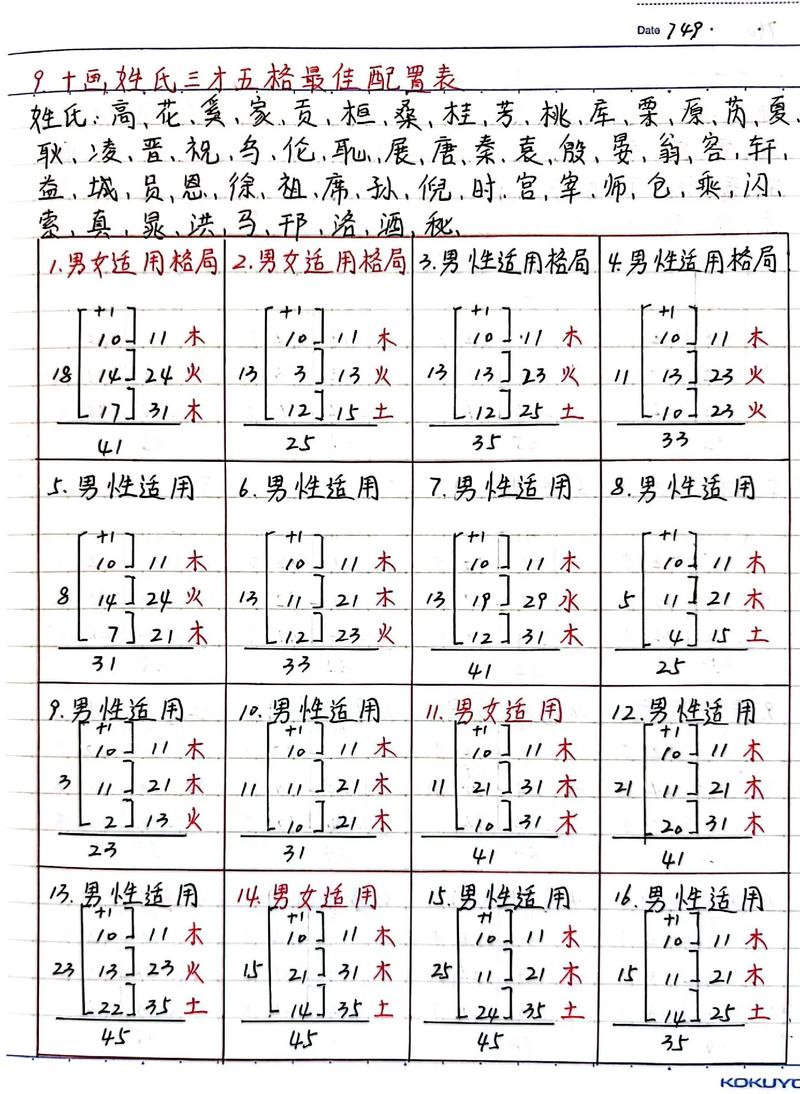 Date 749.
9.十画姓氏三才五格最佳配置表
姓氏:高、花、奚、家、贡、桓、桑、桂、芳、桃、库、栗、原、芮、夏、
耿、凌、晋、祝、乌、伦、耻、展、唐、秦、袁、殷、晏、翁、容、轩、
益、城、员、恩、徐、祖、席、孙、倪、时、宫、宰、师、仓、乘、闪、
索、真、晁、洪、马、邗、洛、洒、秘、
1.男女适用格局
+1
10 11 木
18 14 24 火
17 31 木
41
2.男女适用格局
+1
10 11 木
13 3 13 火
12 15 土
25
3.男性适用格局
+1
10 11 木
13 13 23 火
12 25 土
35
4.男性适用格局
+1
10 11 木
11 13 23 火
10 23 火
33
5.男性适用
+1
10 11 木
8 14 24 火
7 21 木
31
6.男性适用
+1
10 11 木
13 11 21 木
12 23 火
33
7.男性适用
+1
10 11 木
13 19 29 水
12 31 木
41
8.男性适用
+1
10 11 木
5 11 21 木
4 15 土
25
9.男性适用
+1
10 11 木
3 11 21 木
2 13 火
23
10.男性适用
+1
10 11 木
11 11 21 木
10 21 木
31
11.男女适用
+1
10 11 木
11 21 31 木
10 31 木
41
12.男性适用
+1
10 11 木
21 11 21 木
20 31 木
41
13.男性适用
+1
10 11 木
23 13 23 火
22 35 土
45
14.男女适用
+1
10 11 木
15 21 31 木
14 35 土
45
15.男性适用
+1
10 11 木
25 11 21 木
24 35 土
45
16.男性适用
+1
10 11 木
15 11 21 木
14 25 土
35
KOKUYO